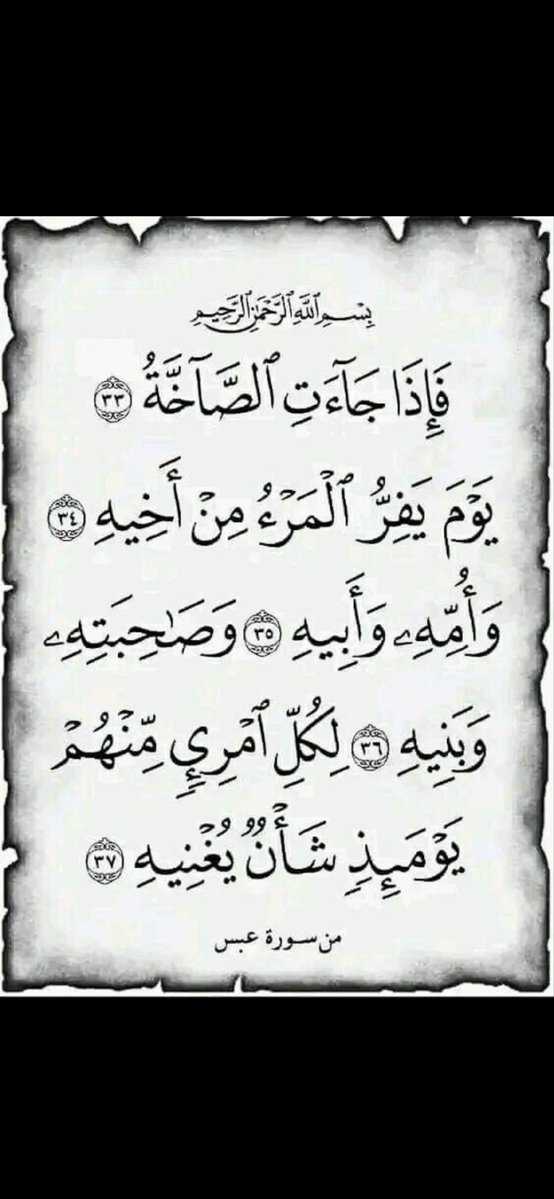 بِسْمِ ٱللَّهِ ٱلرَّحْمَٰنِ ٱلرَّحِيمِ
فَإِذَا جَآءَتِ ٱلصَّآخَّةُ ٣٣
يَوْمَ يَفِرُّ ٱلْمَرْءُ مِنْ أَخِيهِ ٣٤
وَأُمِّهِۦ وَأَبِيهِ ٣٥ وَصَٰحِبَتِهِۦ
وَبَنِيهِ ٣٦ لِكُلِّ ٱمْرِئٍ مِّنْهُمْ
يَوْمَئِذٍ شَأْنٌ يُغْنِيهِ ٣٧
من سورة عبس